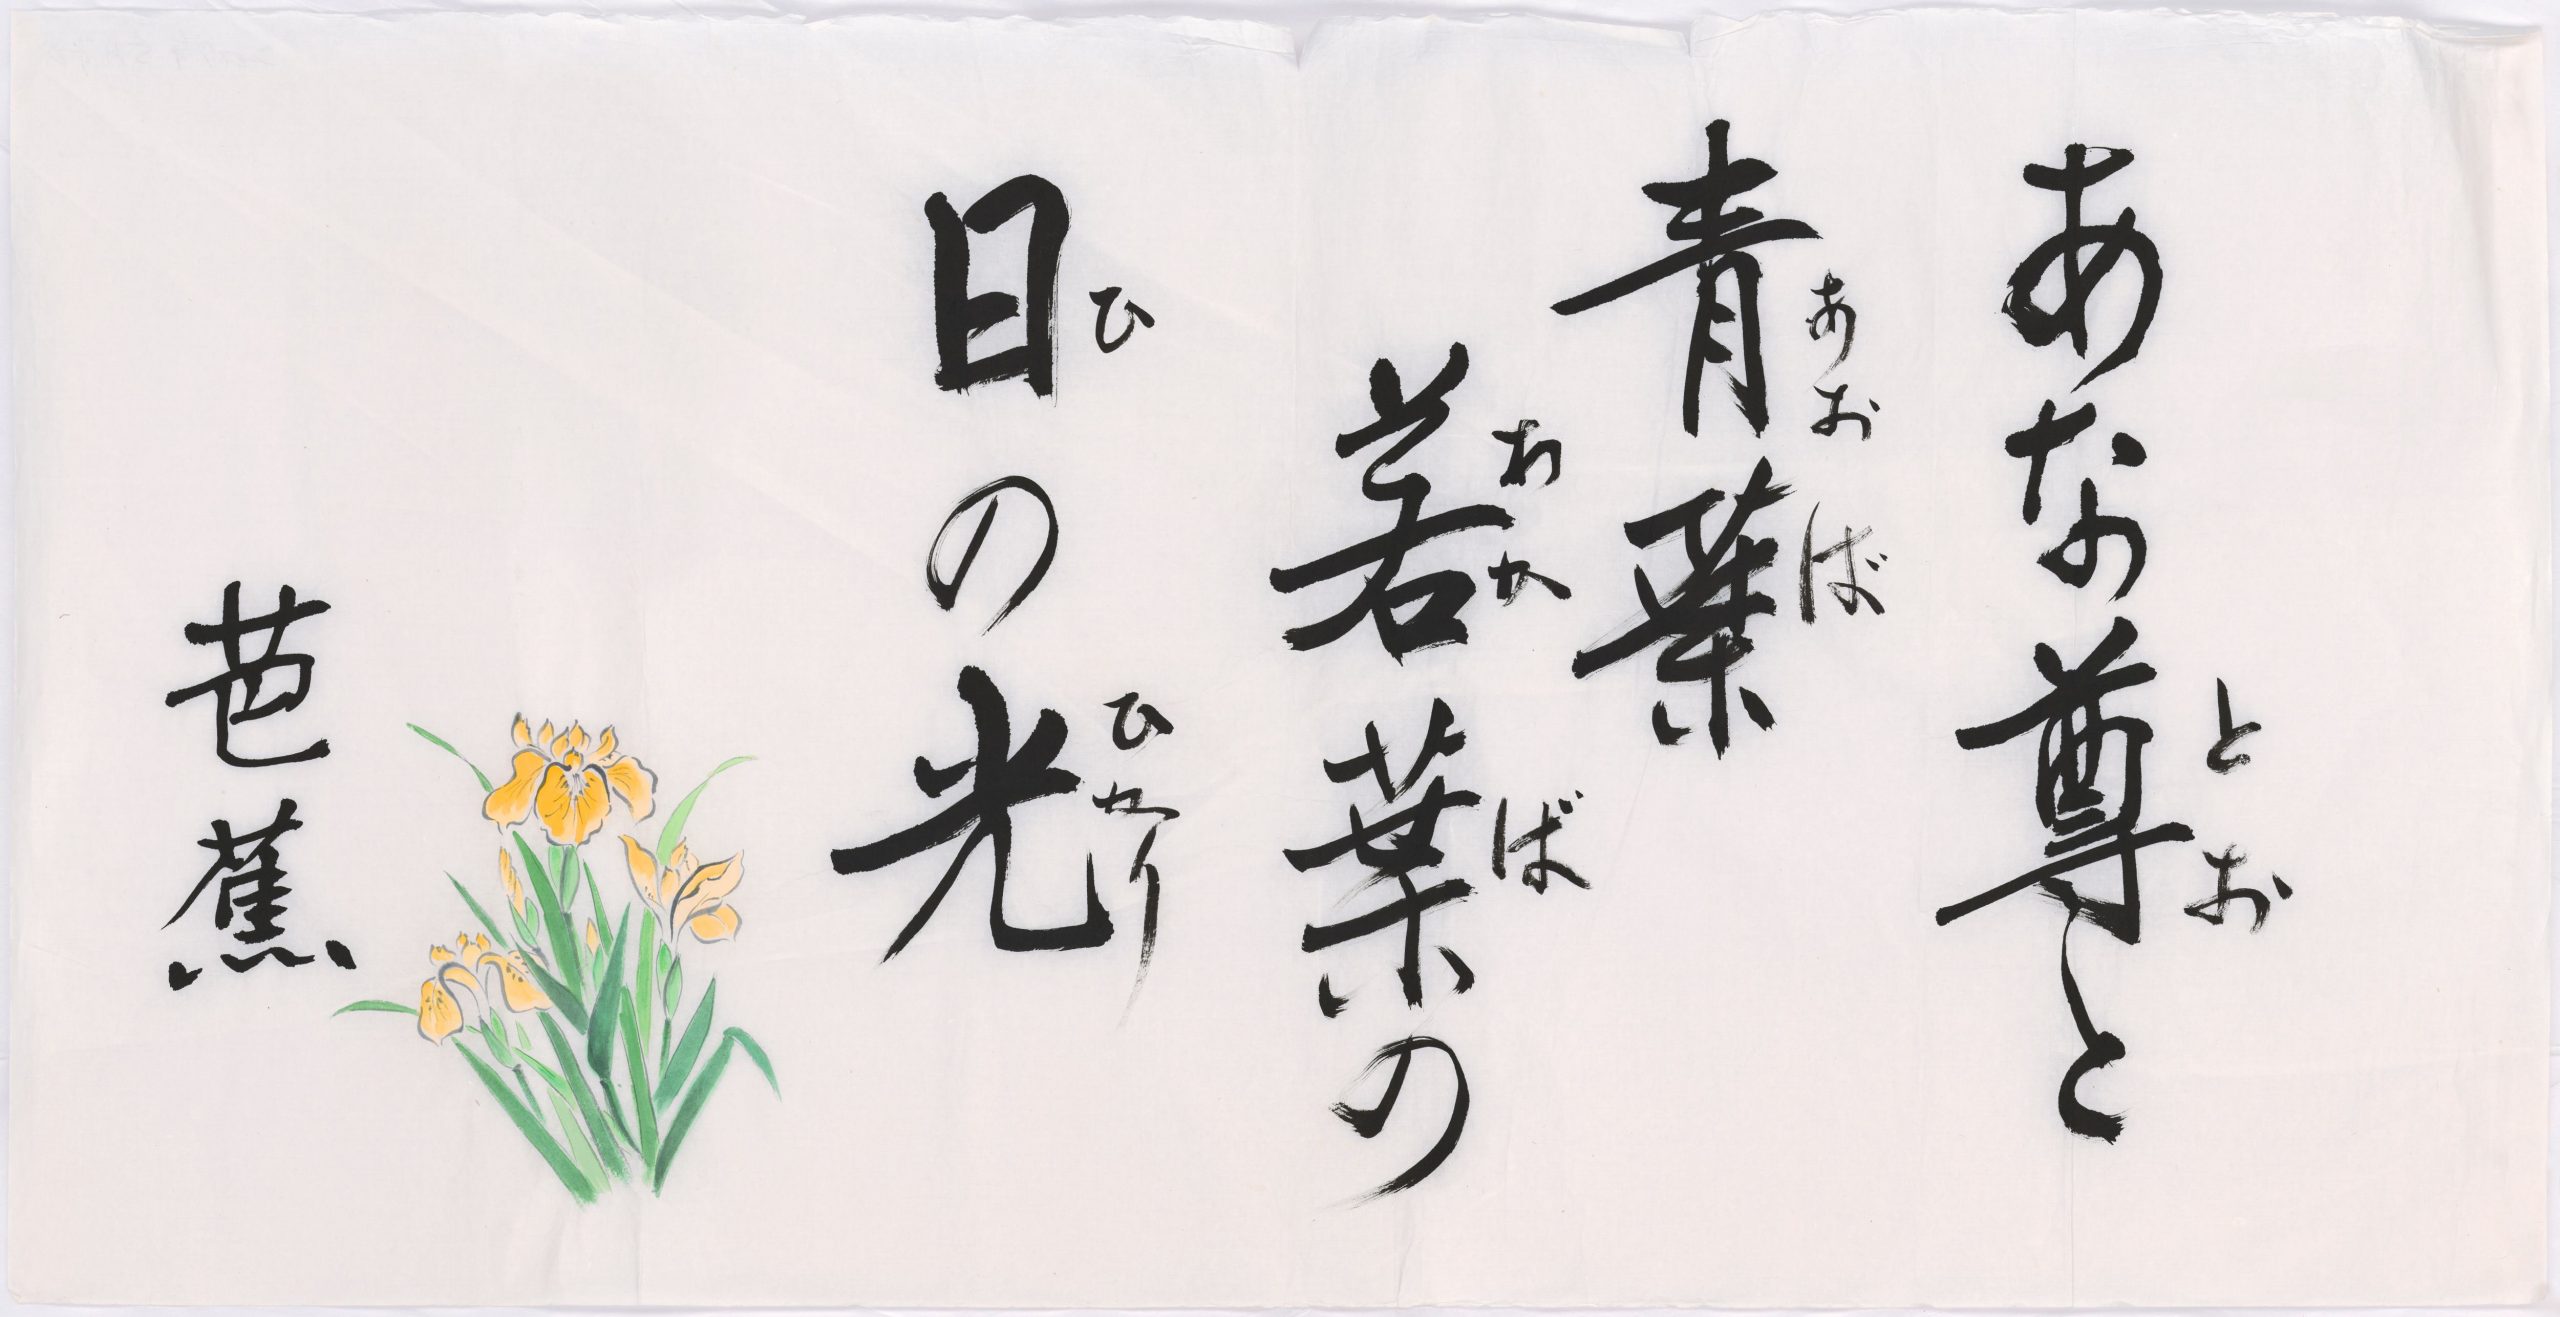 あな尊と
とお
青葉
あおば
若葉の
わかば
日の光
ひ ひかり
芭蕉